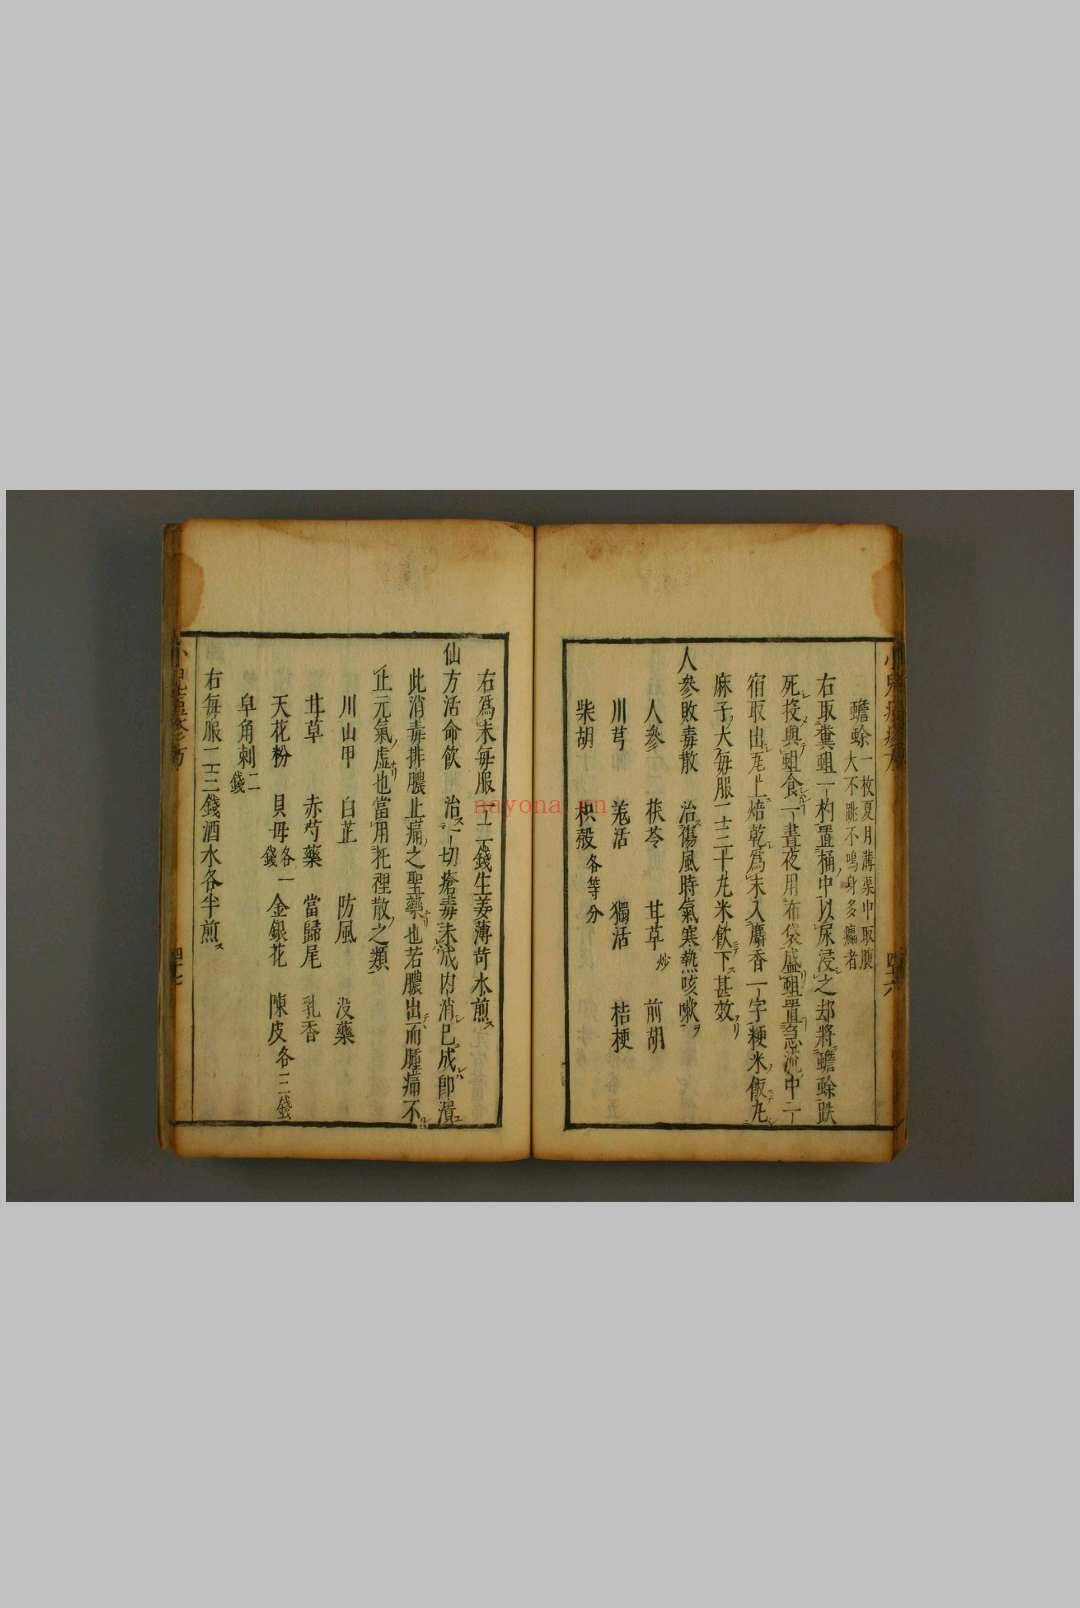 蟾蜍一枚夏月溝渠中取腹
大不跳不鳴身多癩者
右取糞蛆一杓置桶中以尿浸之却將蟾蜍跌
死投與蛆食一晝夜用布袋盛蛆置急流中一
宿取出瓦上焙乾爲末入麝香一字粳米飯丸
麻子大每服二三十丸米飲下甚效
人參敗毒散 治傷風時氣寒熱咳嗽
人參 茯苓 甘草炒 前胡
川芎 羗活 獨活 桔梗
柴胡 枳殼各等分
四十六
右爲末每服一二錢生姜薄荷水煎
仙方活命飲 治一切瘡毒未成内消已成即潰
此消毒排膿止痛之聖藥也若膿出而腫痛不
止元氣虛也當用托裡散之類
川山甲 白芷 防風 没藥
甘草 赤芍藥 當歸尾 乳香
天花粉 貝母各一錢 金銀花 陳皮各三錢
皁角刺二錢
右每服二三錢酒水各半煎
四十七
nayona.cn